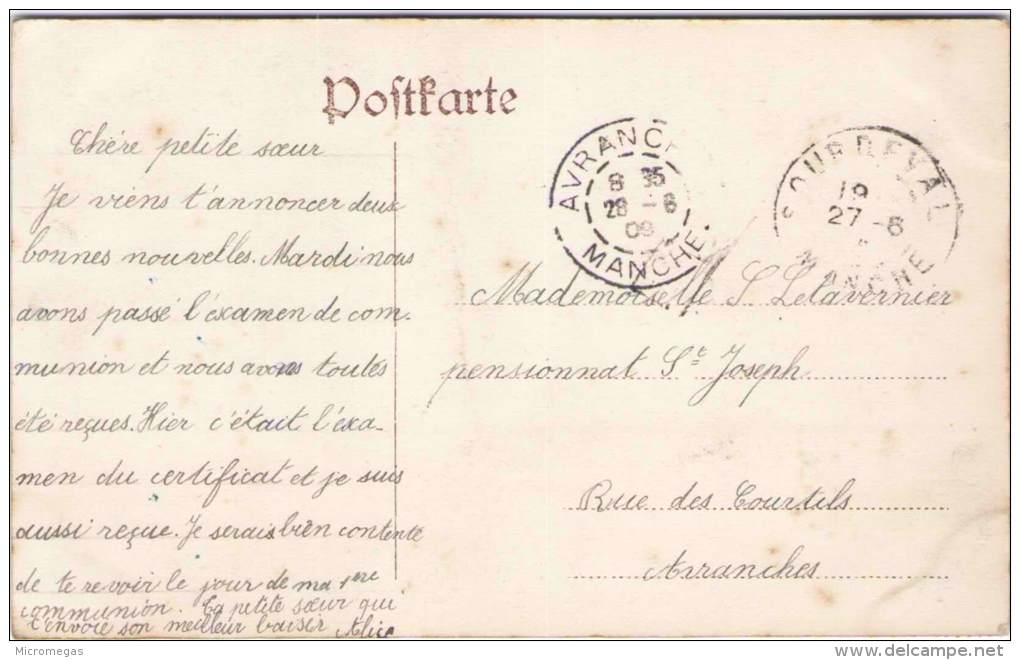 Postkarte
Chère petite sœur
Je viens t'annoncer deux
bonnes nouvelles. Mardi nous
avons passé l'éxamen de com-
munion et nous avons toutes
été reçues. Hier c'était l'éxa-
men du certificat et je suis
aussi reçue. Je serais bien contente
de te revoir le jour de ma 1ère
communion. Ta petite sœur qui
t'envoie son meilleur baiser Alice
AVRANCH
8 35
28 - 6
09
MANCHE.
SOURDEVAL
19
27 - 6
MANCHE
Mademoiselle S Letavernier
pensionnat St Joseph
Rue des Courtils
Avranches
Micromegas
delcampe.net